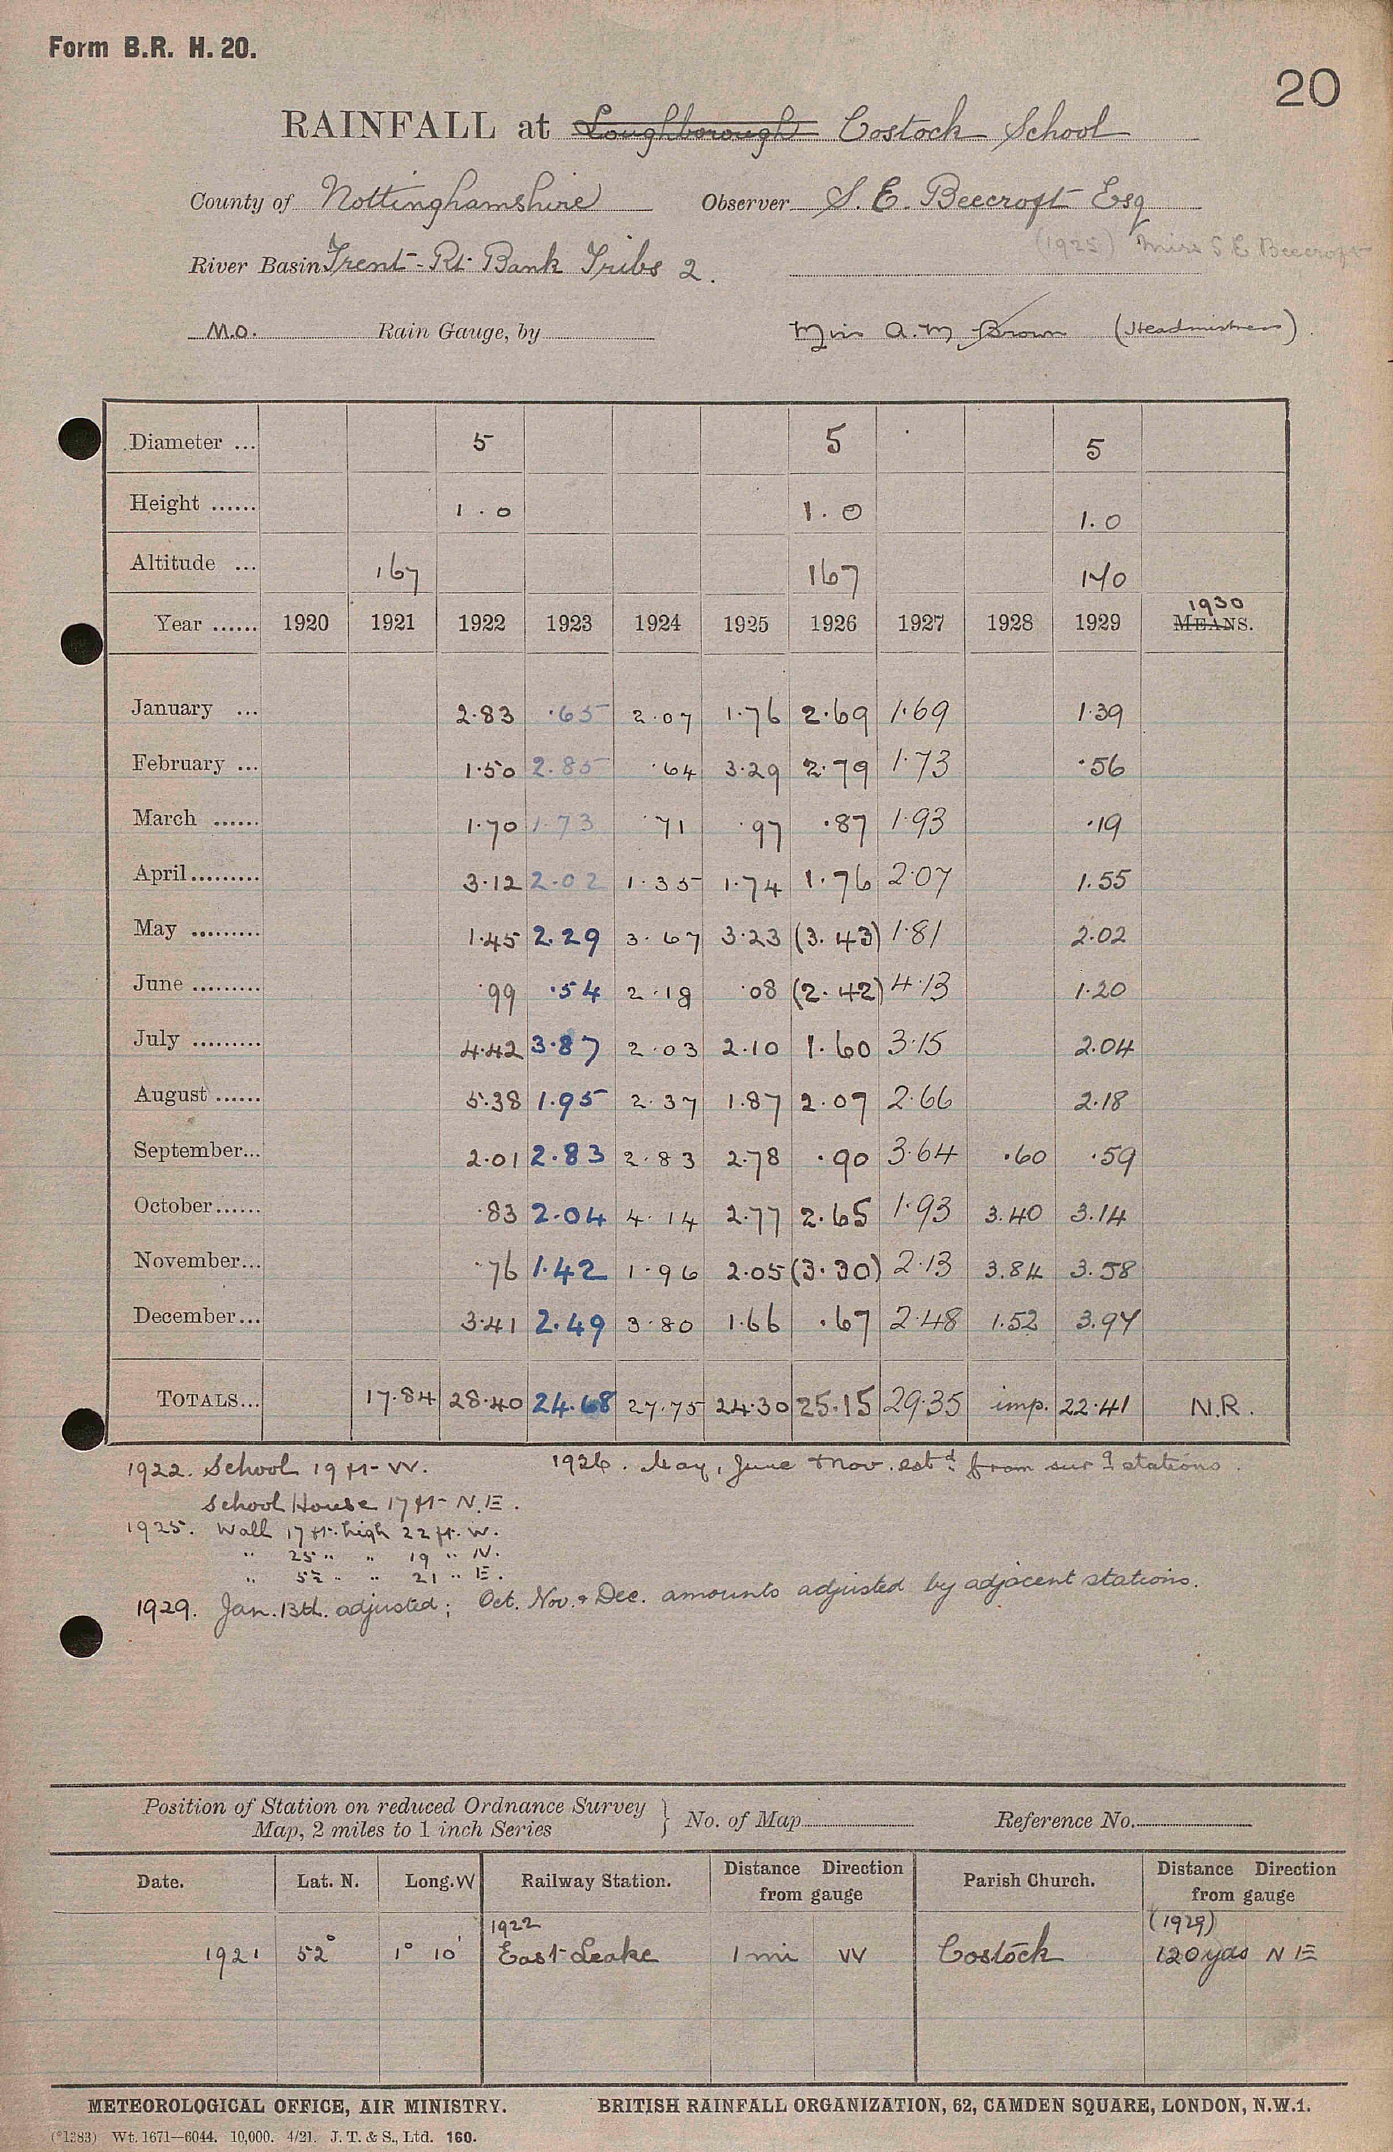 Form B.R. H. 20.
20
RAINFALL at Loughborough Costock School
County of Nottinghamshire Observer S. E. Beecroft Esq
(1925) Miss S E Beecroft
River Basin Trent - Rt. Bank Tribs 2.
M.O. Rain Gauge, by Miss A. M Brown (Headmistress)
Diameter ... 5 5 5
Height ...... 1.0 1.0 1.0
Altitude ... 167 167 170
1930
Year ...... 1920 1921 1922 1923 1924 1925 1926 1927 1928 1929 MEANS.
January ... 2.83 .65 2.07 1.76 2.69 1.69 1.39
February ... 1.50 2.85 .64 3.29 2.79 1.73 .56
March ...... 1.70 1.73 .71 .97 .87 1.93 .19
April......... 3.12 2.02 1.35 1.74 1.76 2.07 1.55
May ......... 1.45 2.29 3.67 3.23 (3.43) 1.81 2.02
June ......... .99 .54 2.18 .08 (2.42) 4.13 1.20
July ......... 4.42 3.87 2.03 2.10 1.60 3.15 2.04
August ...... 5.38 1.95 2.37 1.87 2.07 2.66 2.18
September... 2.01 2.83 2.83 2.78 .90 3.64 .60 .59
October...... .83 2.04 4.14 2.77 2.65 1.93 3.40 3.14
November... .76 1.42 1.96 2.05 (3.30) 2.13 3.84 3.58
December... 3.41 2.49 3.80 1.66 .67 2.48 1.52 3.97
TOTALS... 17.84 28.40 24.68 27.75 24.30 25.15 29.35 imp. 22.41 N.R.
1922. School 19 ft W. 1926. May, June & Nov. estd. from surg stations.
School House 17 ft N.E.
1925. Wall 17 ft. high 22 ft. W.
" 25 " " 19 " N.
" 52 " " 21 " E.
1929. Jan. 13th. adjusted; Oct. Nov. & Dec. amounts adjusted by adjacent stations.
Position of Station on reduced Ordnance Survey
Map, 2 miles to 1 inch Series } No. of Map Reference No.
Date. Lat. N. Long. W Railway Station. Distance Direction from gauge Parish Church. Distance Direction from gauge
1922 (1929)
1921 52° 1° 10' East Leake 1 mi W Costock 120 yds N E
METEOROLOGICAL OFFICE, AIR MINISTRY. BRITISH RAINFALL ORGANIZATION, 62, CAMDEN SQUARE, LONDON, N.W.1.
(*1383) Wt. 1671—6044. 10,000. 4/21. J. T. & S., Ltd. 160.